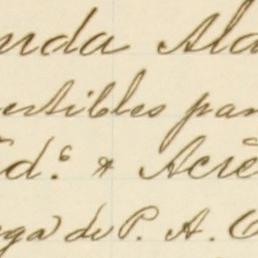 nda Ala
estibles par
Ed.º * Acré
ga de P. A. C